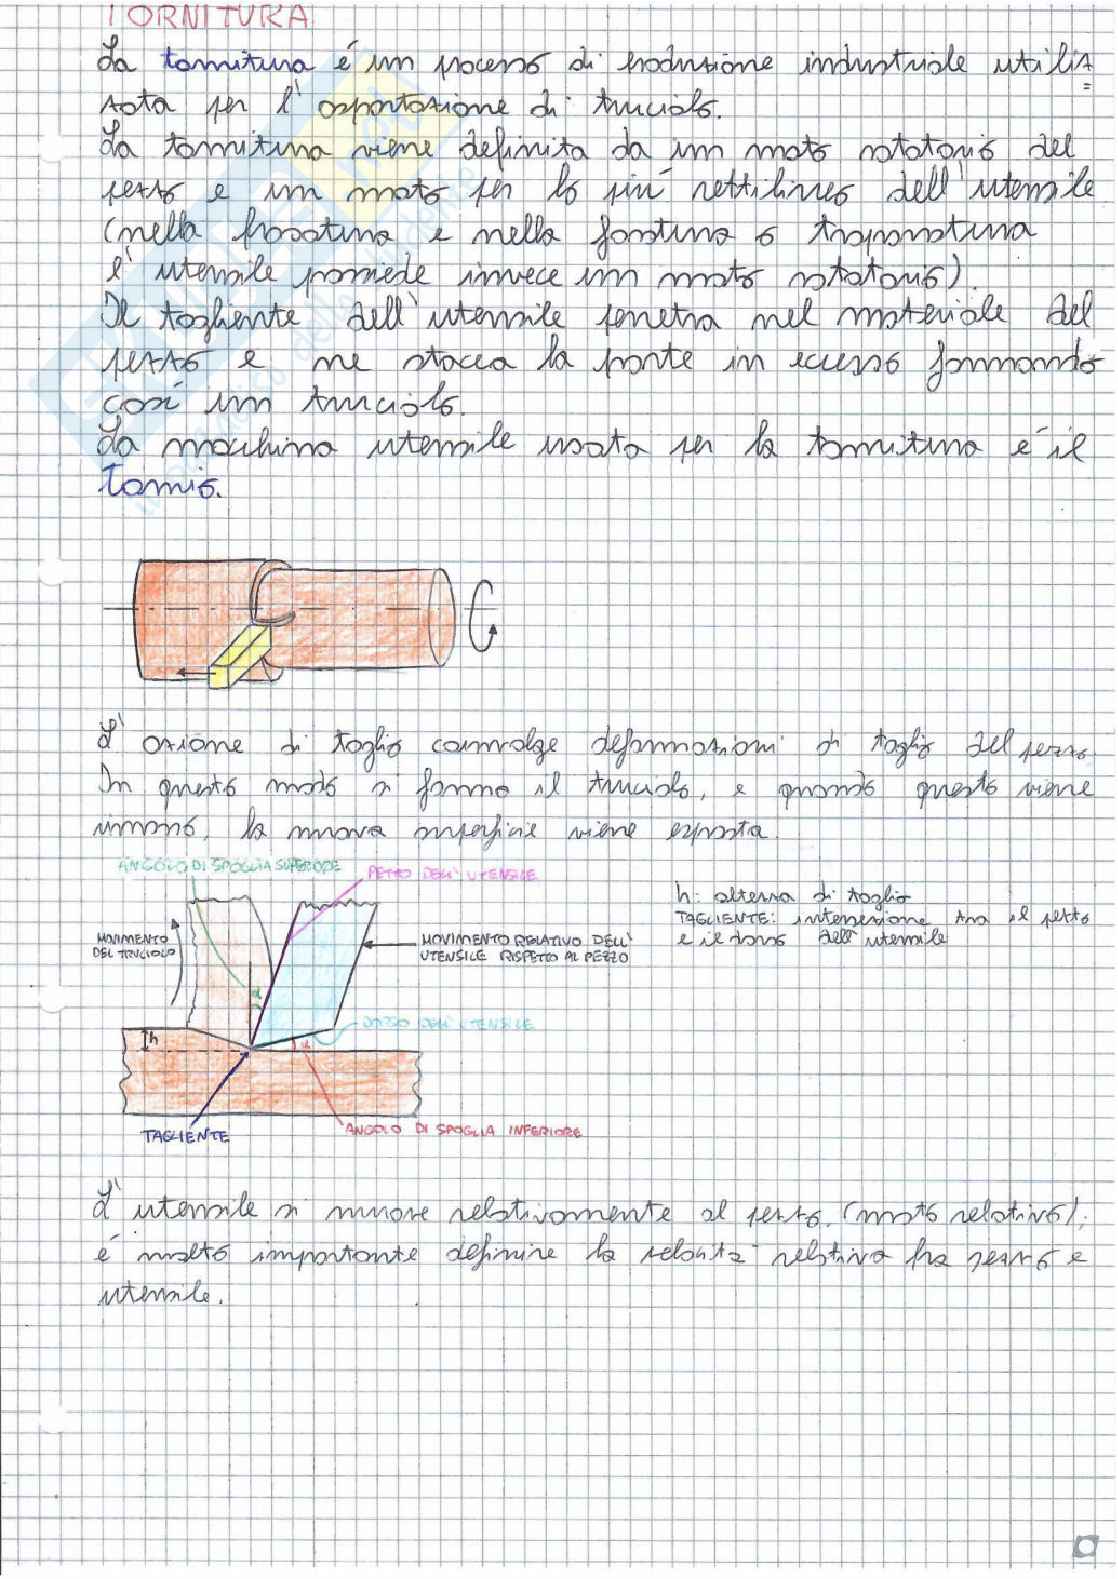 TORNITURA
La tornitura é un processo di produzione industriale utiliz=
zata per l'asportazione di truciolo.
La tornitura viene definita da un moto rotatorio del
pezzo e un moto per lo più rettilineo dell'utensile
(nella fresatura e nella foratura o trapanatura
l'utensile possiede invece un moto rotatorio).
Il tagliente dell'utensile penetra nel materiale del
pezzo e ne stacca la parte in eccesso formando
così un truciolo.
La macchina utensile usata per la tornitura é il
tornio.
L'azione di taglio coinvolge deformazioni di taglio del pezzo.
In questo modo si forma il truciolo, e quando questo viene
rimosso, la nuova superficie viene esposta.
ANGOLO DI SPOGLIA SUPERIORE
PETTO DELL'UTENSILE
h: altezza di taglio
TAGLIENTE: intersezione tra il petto
e il dorso dell'utensile
MOVIMENTO
DEL TRUCIOLO
MOVIMENTO RELATIVO DELL'
UTENSILE RISPETTO AL PEZZO
DORSO DELL'UTENSILE
h
TAGLIENTE
ANGOLO DI SPOGLIA INFERIORE
L'utensile si muove relativamente al pezzo. (moto relativo);
é molto importante definire la velocità relativa fra pezzo e
utensile.